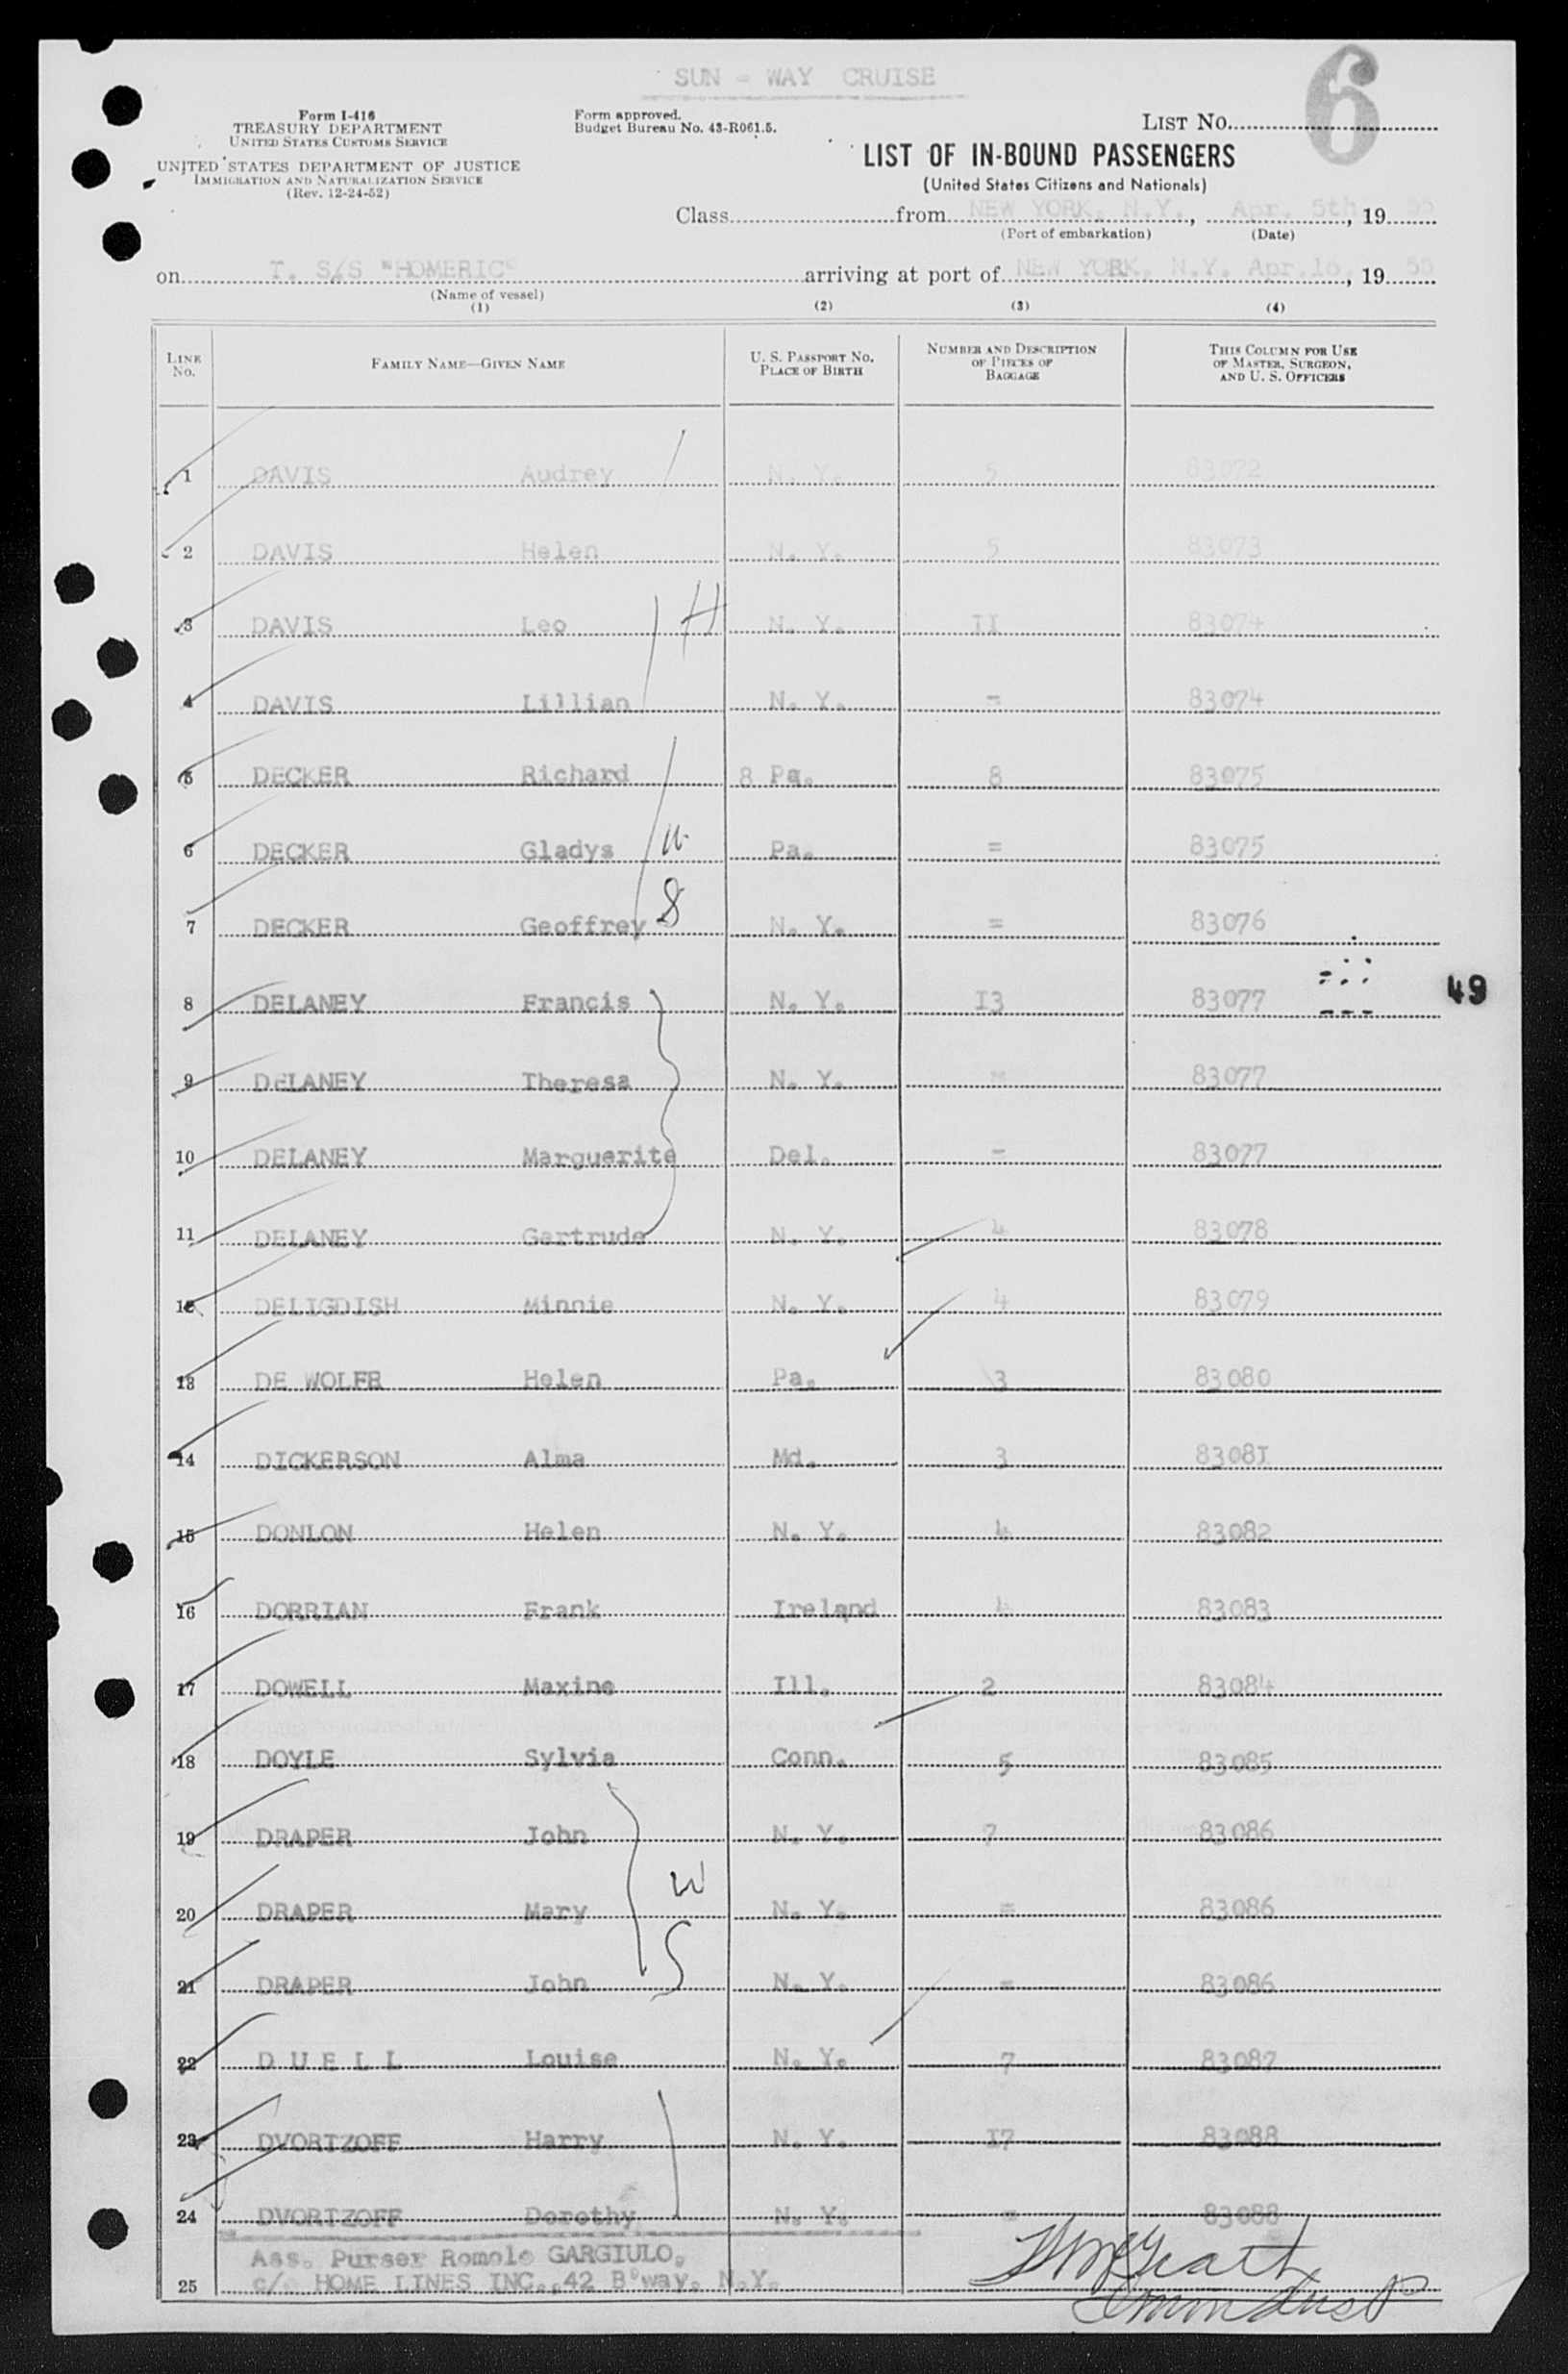 SUN - WAY CRUISE
6
Form I-416
TREASURY DEPARTMENT
UNITED STATES CUSTOMS SERVICE
UNITED STATES DEPARTMENT OF JUSTICE
IMMIGRATION AND NATURALIZATION SERVICE
(Rev. 12-24-52)
Form approved.
Budget Bureau No. 43-R061.5.
LIST NO.
LIST OF IN-BOUND PASSENGERS
(United States Citizens and Nationals)
Class from NEW YORK, N.Y., Apr. 5th, 19
(Port of embarkation) (Date)
on T. S/S "HOMERIC" arriving at port of NEW YORK, N.Y. Apr.16, 19
(Name of vessel)
(1) (2) (3) (4)
LINE NO. FAMILY NAME—GIVEN NAME U. S. PASSPORT NO. PLACE OF BIRTH NUMBER AND DESCRIPTION OF PIECES OF BAGGAGE THIS COLUMN FOR USE OF MASTER, SURGEON, AND U. S. OFFICERS
1 DAVIS Audrey N. Y. 5 83072
2 DAVIS Helen N. Y. 5 83073
3 DAVIS Leo H N. Y. II 83074
4 DAVIS Lillian N. Y. = 83074
5 DECKER Richard 8 Pa. 8 83075
6 DECKER Gladys W Pa. = 83075
7 DECKER Geoffrey S N. Y. = 83076
8 DELANEY Francis N. Y. I3 83077
49
9 DELANEY Theresa N. Y. = 83077
10 DELANEY Marguerite Del. - 83077
11 DELANEY Gertrude N. Y. 4 83078
12 DELIGDISH Minnie N. Y. 4 83079
13 DE WOLFR Helen Pa. 3 83080
14 DICKERSON Alma Md. 3 8308I
15 DONLON Helen N. Y. 4 83082
16 DORRIAN Frank Ireland 4 83083
17 DOWELL Maxine Ill. 2 83084
18 DOYLE Sylvia Conn. 5 83085
19 DRAPER John N. Y. 7 83086
20 DRAPER Mary W N. Y. = 83086
21 DRAPER John S N. Y. = 83086
22 D U E L L Louise N. Y. 7 83087
23 DVORTZOFF Harry N. Y. I7 83088
24 DVORTZOFF Dorothy N. Y. = 83088
Ass. Purser Romolo GARGIULO.
25 c/o HOME LINES INC., 42 B'way. N.Y.